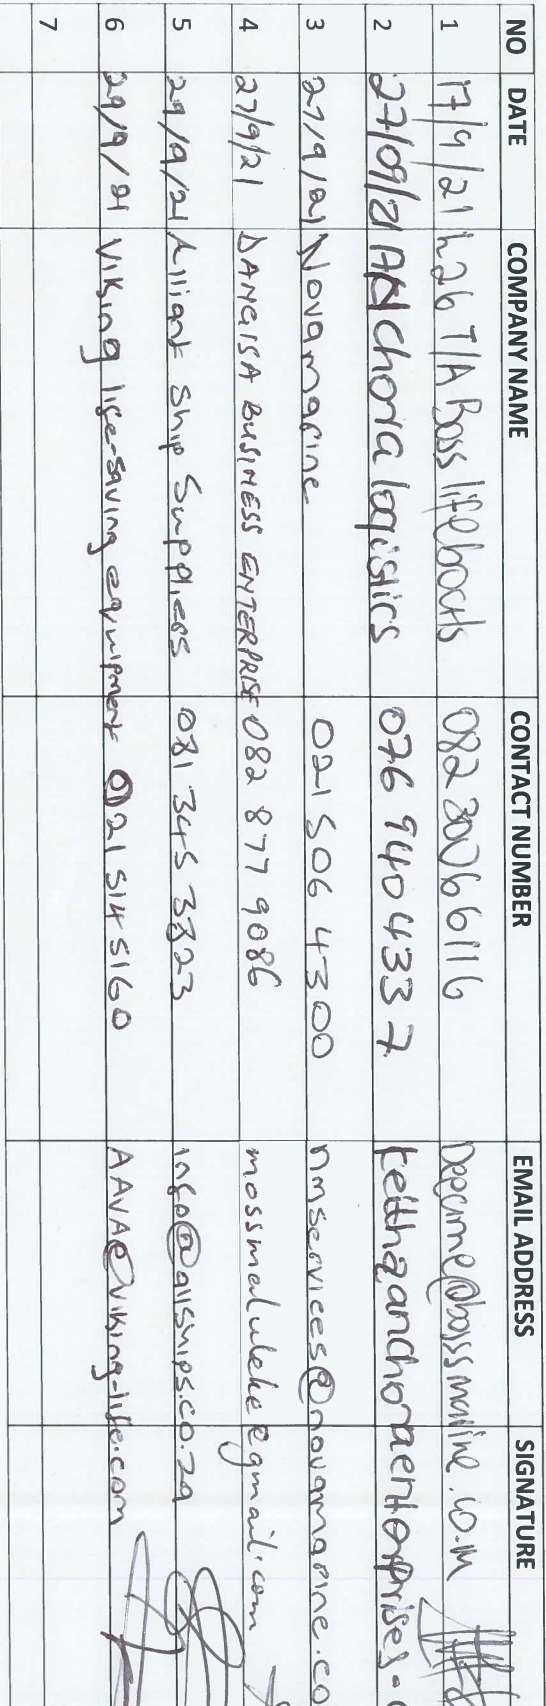 NO DATE COMPANY NAME CONTACT NUMBER EMAIL ADDRESS SIGNATURE
1 17/9/21 L26 T/A Boss lifeboats 082 300 66116 @bossmarine.co.m
2 27/09/21 ANchora logistics 076 940 4337 keith@anchoraenterprises.
3 27/9/21 Novamarine 021 506 4300 nmservices@novamarine.co
4 27/9/21 DANGISA BUSINESS ENTERPRISE 082 877 9086 mossmaluleke@gmail.com
5 29/9/21 Alliant Ship Suppliers 081 345 3323 info@allships.co.za
6 29/9/21 Viking life-saving equipment 021 514 5160 AAVA@viking-life.com
7